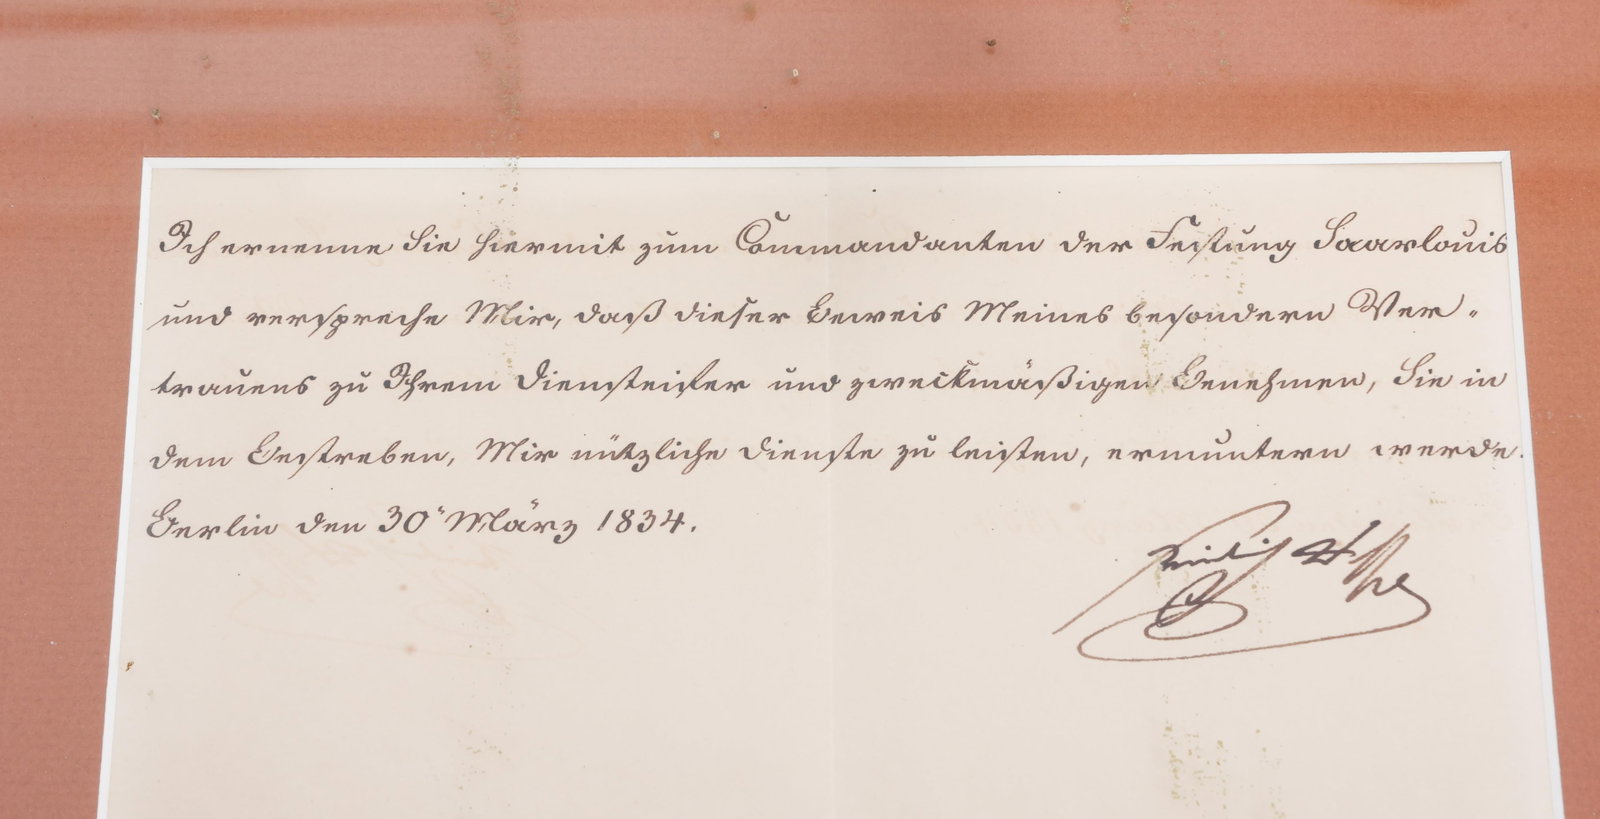 Ich ernenne Sie hiermit zum Commandanten der Festung Saarlouis
und verspreche Mir, daß dieser Beweis Meines besondern Ver-
trauens zu Ihrem Diensteifer und zweckmäßigen Benehmen, Sie in
dem Bestreben, Mir nützliche Dienste zu leisten, ermuntern werde.
Berlin den 30' März 1834.